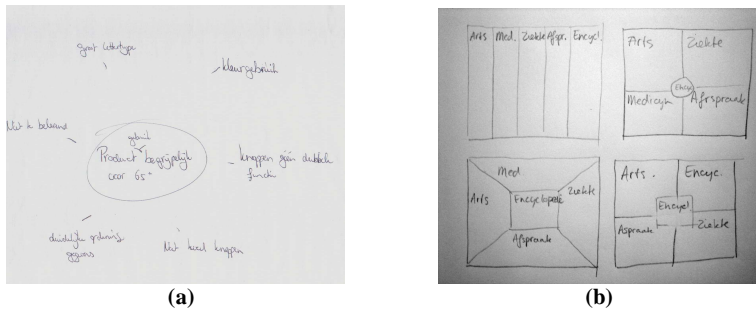 groot lettertype
kleurgebruik
Niet te
gebruik
Product begrijpelijk
voor 65+
knoppen géén dubbele
functie
duidelijke ordening
gegevens
Niet veel knoppen
(a)
Arts Med. Ziekte Afspr. Encycl.
Arts Ziekte
Ency
Medicijn Afrspraak
Med
Arts Encyclopedie Ziekte
Afspraak
Arts. Encyc.
Encycl
Aspraak Ziekte
(b)